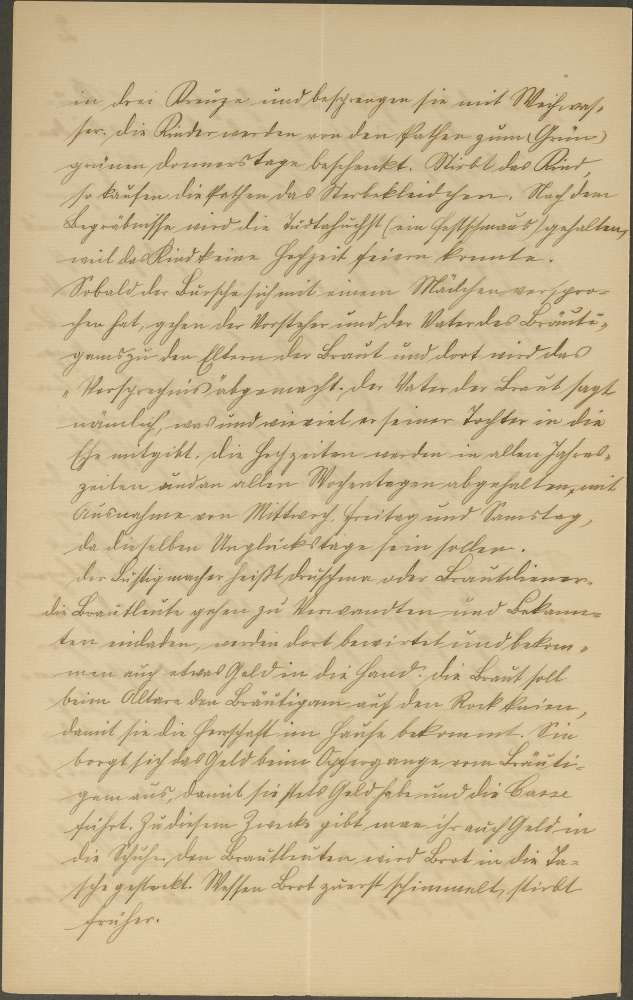 in drei Kreuze und besprengen sie mit Weihwas-
ser. Die Kinder werden von den Pathen zum (Grün)
grünen Donnerstage beschenkt. Stirbt das Kind,
so kaufen die Pathen das Sterbekleidchen. Nach dem
Begräbnisse wird die (ein Festschmaus) gehalten,
weil das Kind keine Hochzeit feiern konnte.
Sobald der Bursche sich mit einem Mädchen verspro-
chen hat, gehen der Vorsteher und der Vater des Bräuti-
gams zu den Eltern der Braut und dort wird das
"Versprechnis" abgemacht. Der Vater der Braut sagt
nämlich, was und wieviel er seiner Tochter in die
Ehe mitgibt. Die Hochzeiten werden in allen Jahres-
zeiten und an allen Wochentagen abgehalten, mit
Ausnahme von Mittwoch, Freitag und Samstag,
da dieselben Unglückstage sein sollen.
Der Lustigmacher heißt Druschma oder Brautdiener.
Die Brautleute gehen zu Verwandten und Bekann-
ten einladen, werden dort bewirtet und bekom-
men auch etwas Geld in die Hand. Die Braut soll
beim Altare den Bräutigam auf den Rock knien,
damit sie die Herrschaft im Hause bekommt. Sie
borgt sich das Geld beim Opfergange vom Bräuti-
gam aus, damit sie stets Geld habe und die Casse
führt. Zu diesem Zwecke gibt man ihr auch Geld in
die Schuhe. Den Brautleuten wird Brot in die Ta-
sche gesteckt. Wessen Brot zuerst schimmelt, stirbt
früher.